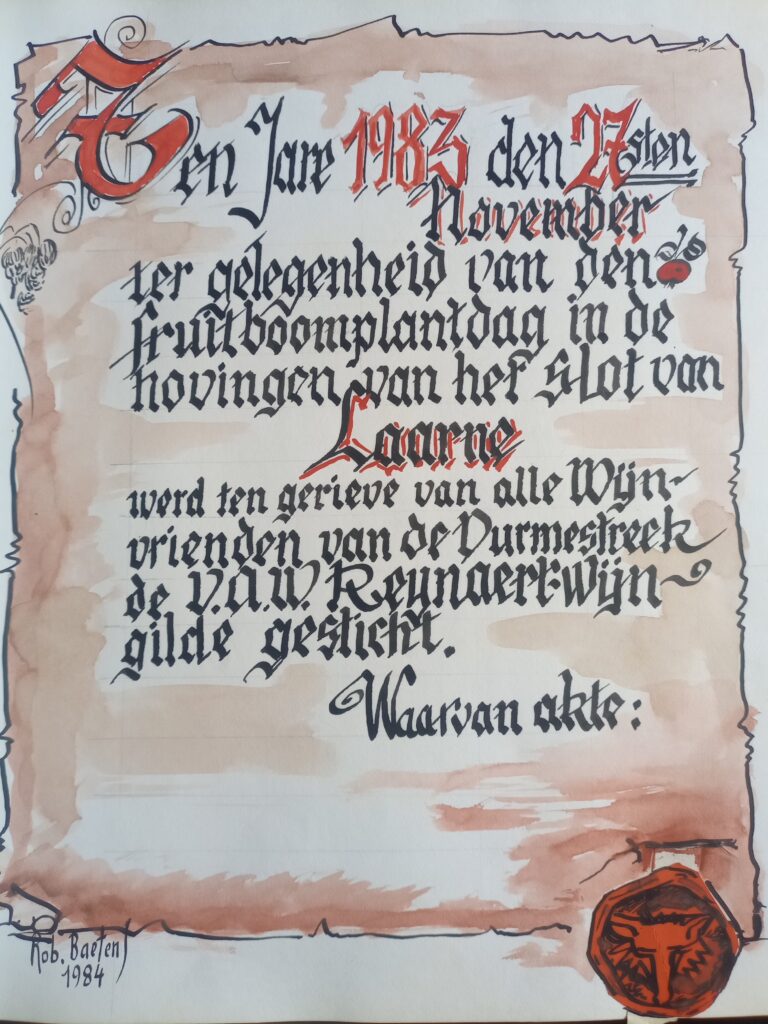 Ten Jare 1983 den 27sten
November
ter gelegenheid van den
fruitboomplantdag in de
hovingen van het slot van
Laarne
werd ten gerieve van alle Wijn-
vrienden van de Durmestreek
de V.A.W. Reynaert-Wijn-
gilde gesticht.
Waarvan akte:
Rob. Baetens
1984